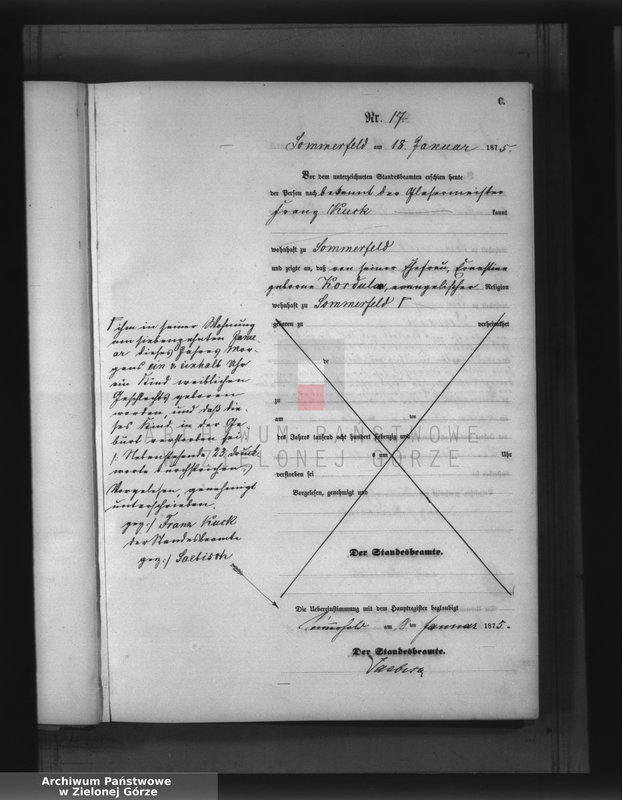 C.
Nr. 17
Sommerfeld am 18. Januar 1875.
Vor dem unterzeichneten Standesbeamten erschien heute
der Person nach bekannt der Glasermeister
Franz Kuck kannt
wohnhaft zu Sommerfeld
und zeigte an, daß von seiner Ehefrau, Ernestine
geborne Kordula, evangelischer Religion
wohnhaft zu Sommerfeld Γ
geboren zu verheirathet
de
zu
am ten
des Jahres tausend acht hundert siebenzig und
um Uhr
verstorben sei
Vorgelesen, genehmigt und
Der Standesbeamte.
Γ ihm in seiner Wohnung
am siebenzehnten Janu
ar dieses Jahres Mor-
gens ein Uhr
ein Kind weiblichen
Geschlechts geboren
worden, und daß die-
ses Kind in der Ge-
burt verstorben sei
/: Nebenstehende 23 Druck-
worte durchstrichen
Vorgelesen, genehmigt
unterschrieben.
gez:/ Franz Kuck
der Standesbeamte
gez:/
Die Uebereinstimmung mit dem Hauptregister beglaubigt
Sommerfeld am ten Januar 1875.
Der Standesbeamte.
ARCHIWUM PAŃSTWOWE
W ZIELONEJ GÓRZE
Archiwum Państwowe
w Zielonej Górze